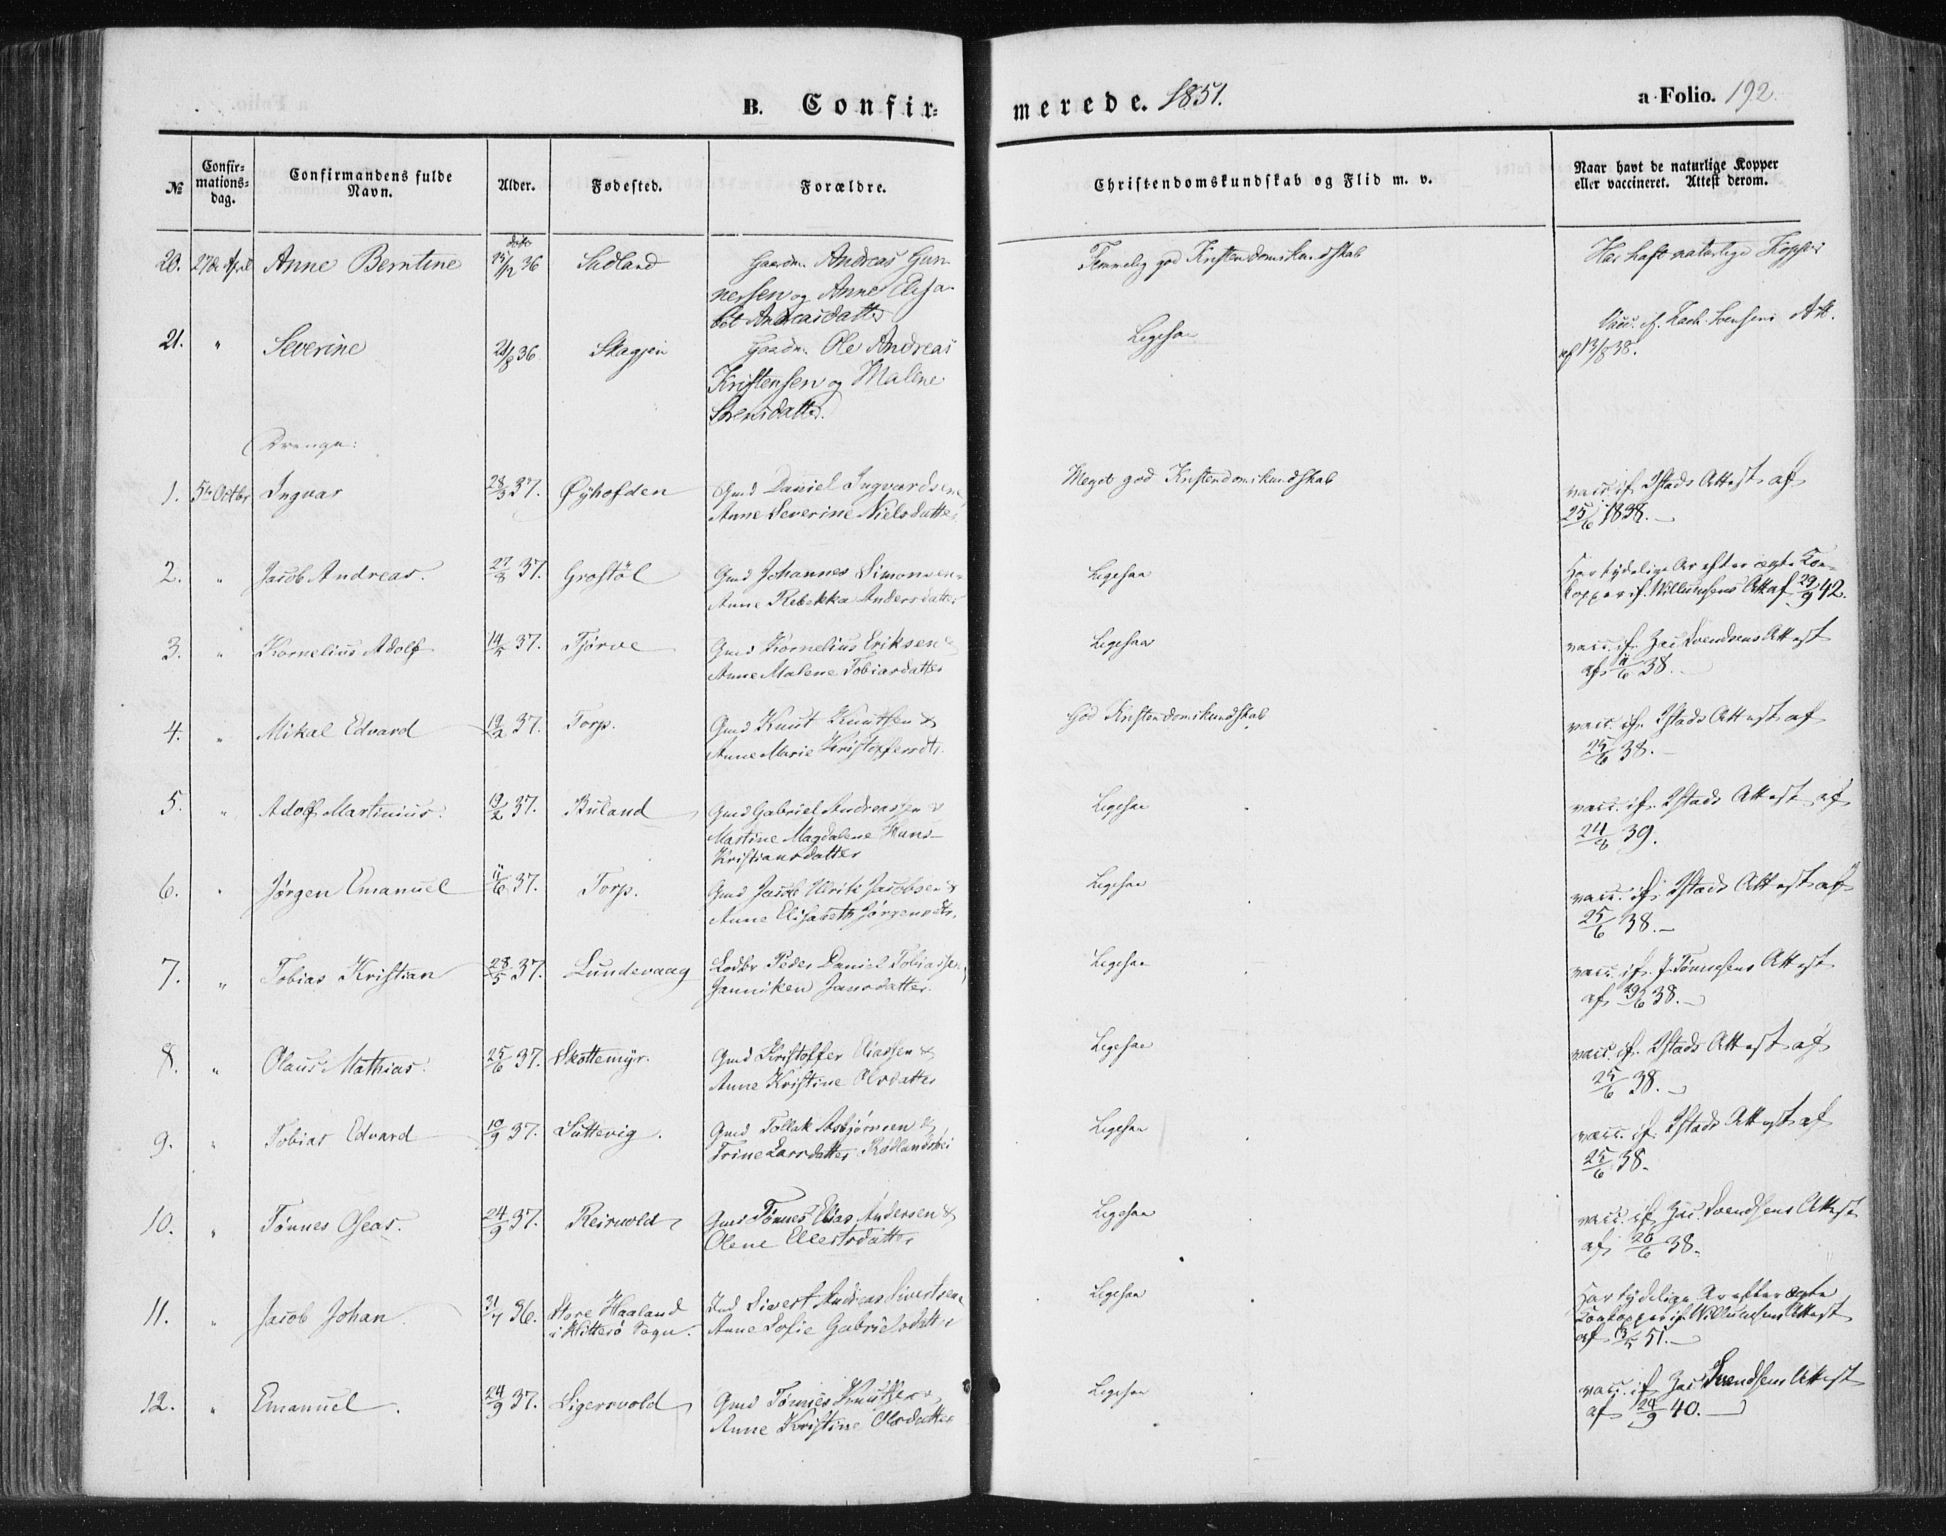 B. Confir-
merede. 1851.
a Folio. 192
№
Confir-
mations-
dag.
Confirmandens fulde
Navn.
Alder.
Fødested.
Forældre.
Christendomskundskab og Flid m. v.
Naar havt de naturlige Kopper
eller vaccineret. Attest derom.
20. 27de April Anne Berntine 36 Sadland Gaardm. Andreas Gun-
nersen og Anne Elisa-
bet Andreasdatter
Temmelig god Kristendomskundskab
Har haft naturlige Kopper
21. " Severine 21/8 36 Skagjen Gaardm. Ole Andreas
Kristensen og Malene
Sørensdatter.
Ligesaa
af 13/8 38.
Drenge:
1. 5te Octbr Ingvar 28/3 37. Øyhofden Gmd Daniel Ingvardsen
Anne Severine Nielsdatter
Meget god Kristendomskundskab
vacc. if. Ystads Attest af
25/6 1838.
2. " Jacob Andreas. 27/8 37. Grostöl Gmd Johannes Simonsen
Anne Rebekka Andersdatter
Ligesaa
Har tydelige Ar efter ægte Koe-
kopper if. Willumsens Att af 29/9 42.
3. " Kornelius Adolf 37. Tjørve Gmd Kornelius Eriksen &
Anne Malene Tobiasdatter
Ligesaa
vacc. if. Zac Svendsens Attest
af 38.
4. " Mikal Edvard 19/2 37. Torp. Gmd Knut Knutsen &
Anne Marie Kristoffersdt.
God Kristendomskundskab
vacc. if. Ystads Attest af
25/6 38.
5. " Adolf Martinius. 19/2 37. Buland Gmd Gabriel Andreassen &
Martine Magdalene Hans-
Kristiansdatter
Ligesaa
vacc. if. Ystads Attest af
24/6 39.
6. " Jørgen Emanuel 37. Torp. Gmd Jacob Ulrik Jacobsen &
Anne Elisabeth Jørgensdtr.
Ligesaa
vacc. if. Ystads Attest af
25/6 38.
7. " Tobias Kristian 28/5 37. Lundevaag Lodsbr Peder Daniel Tobiassen
Janniken Jansdatter.
Ligesaa
vacc. if. J. Tønnesens Attest
af 29/6 38.
8. " Olaus Mathias. 25/6 37. Skottemyr. Gmd Kristoffer Eliassen &
Anne Kristine Olsdatter
Ligesaa
vacc. if. Ystads Attest af
25/6 38.
9. " Tobias Edvard 10/9 37. Luttevig. Gmd Tollak Asbjørnsen &
Trine Larsdatter Rødlandsbei
Ligesaa
vacc. if. Ystads Attest af
25/6 38.
10. " Tønnes Oleas. 24/9 37. Reirvold Gmd Tønnes Elias Andersen &
Olene Ellertsdatter
Ligesaa
vacc. if. Zac. Svendsens Attest
af 26/6 38.
11. " Jacob Johan. 31/7 36. Store Haaland
i Hitterø Sogn. Ind Sivert Andreas Sivertsen
Anne Sofie Gabrielsdatter
Ligesaa
Har tydelige Ar efter ægte
Koekopper if. Willumsens Attest
af 51.
12. " Emanuel. 24/9 37. Ligervold Gmd Tønnes Knutsen &
Anne Kristine Olsdatter
Ligesaa
vacc. if. Zac Svendsens Attest
af 29/9 40.